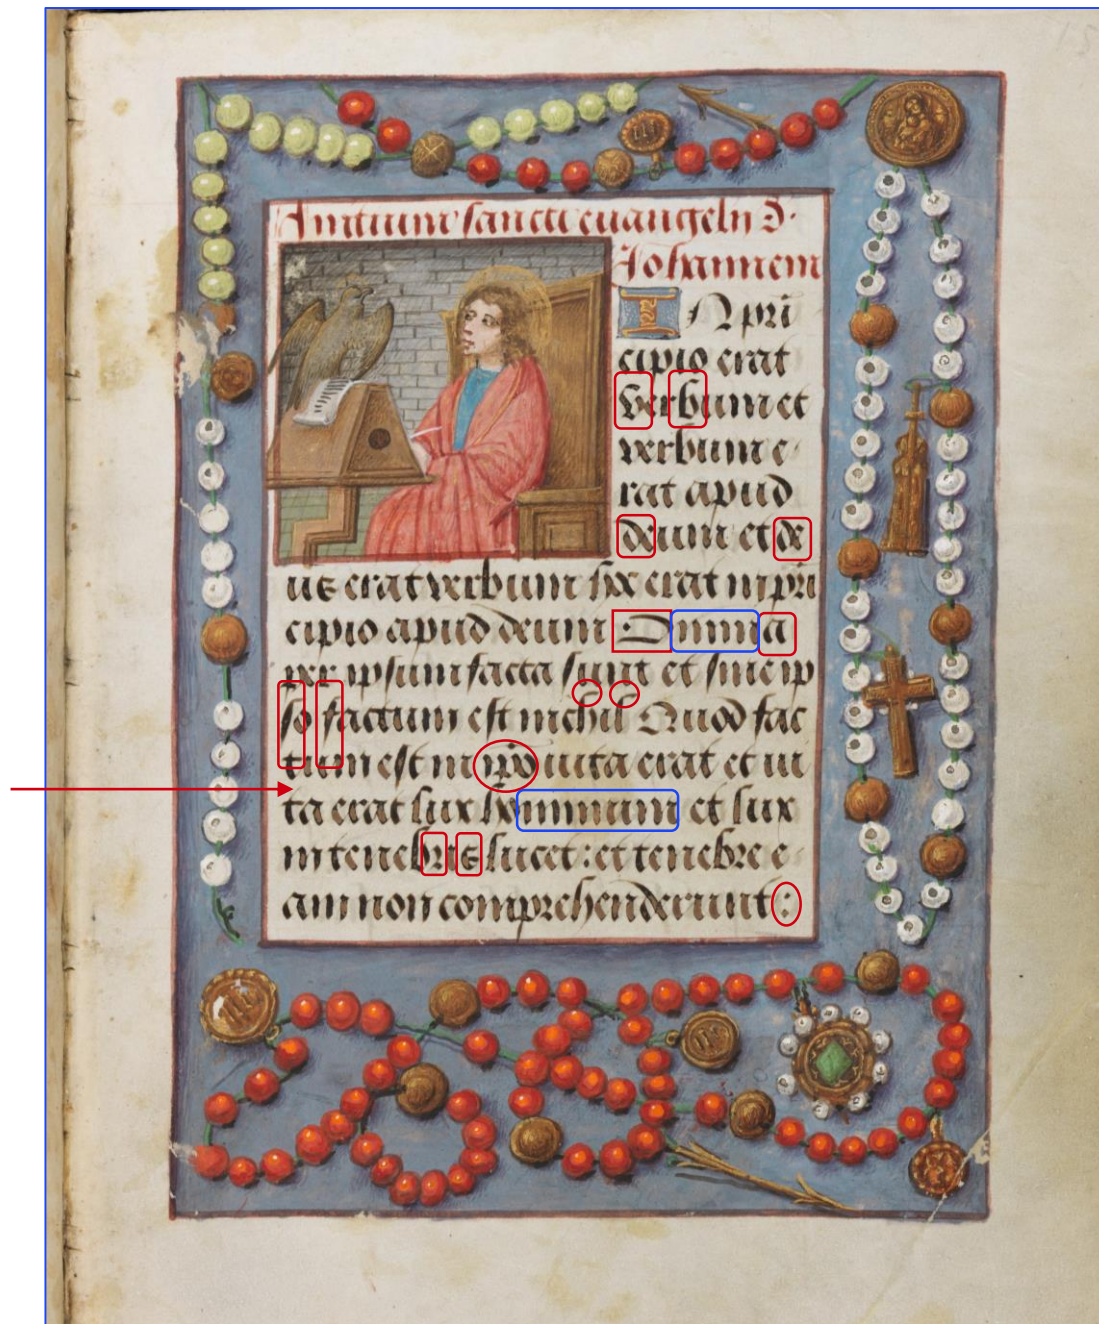 Initium sancti euangelii ẜ.
Johannem
IN pri
cipio erat
verbum et
verbum e
rat apud
deum et de
us erat verbum hoc erat in pri
cipio apud deum . Omnia
per ipsum facta sunt et sine ip
so factum est nichil Quod fac
tum est in ip̄o uita erat et ui
ta erat lux hominum et lux
in tenebris lucet : et tenebre e
am non comprehenderunt :